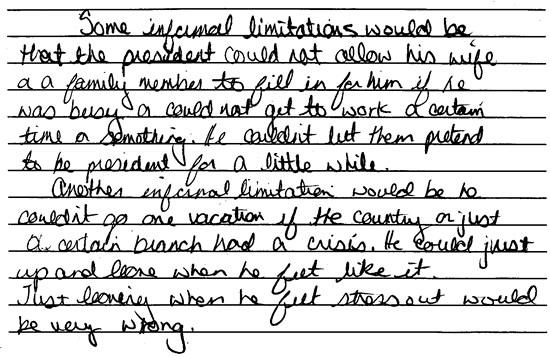 Some informal limitations would be
that the president could not allow his wife
a a family member to fill in for him if he
was busy or could not get to work a certain
time or somothing. He couldn't let them pretend
to be president for a little while.
Another informal limitation would be he
couldn't go one vacation if the country or just
a certain branch had a crisis. He could just
up and leave when he felt like it.
Just leaving when he felt stress out would
be very wrong.